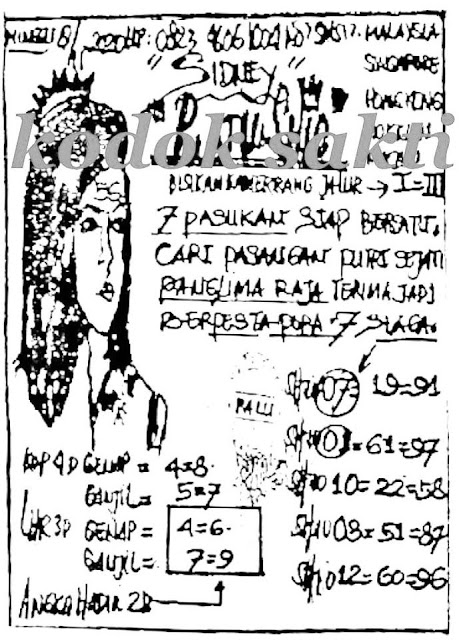 MINGGU 8/
2020 HP: 0823
"SIDNEY"
MALAYSIA
SINGAPORE
HONGKONG
kodok sakti
JALUR → I=III
7 PASUKAN SIAP BERSATU.
CARI PASANGAN PUTRI SEJATI
PANGLIMA RAJA TERIMA JADI
BERPESTA PORA 7 SIAGA.
PALU
SHIO 07= 19=91
SHIO 01=61=97
SHIO 10=22=58
SHIO 03=51=87
SHIO 12=60=96
KOP 4D GENAP = 4=8.
GANJIL = 5=7
3D GENAP = 4=6.
GANJIL = 7=9
ANGKA HADIR 2D